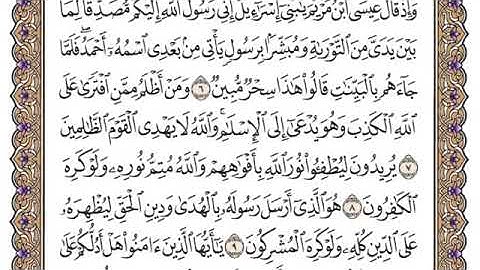 وَإِذْ قَالَ عِيسَى ٱبْنُ مَرْيَمَ يَٰبَنِىٓ إِسْرَٰٓءِيلَ إِنِّى رَسُولُ ٱللَّهِ إِلَيْكُم مُّصَدِّقًا لِّمَا
بَيْنَ يَدَىَّ مِنَ ٱلتَّوْرَىٰةِ وَمُبَشِّرًۢا بِرَسُولٍ يَأْتِى مِنۢ بَعْدِى ٱسْمُهُۥٓ أَحْمَدُ ۖ فَلَمَّا
جَآءَهُم بِٱلْبَيِّنَٰتِ قَالُوا۟ هَٰذَا سِحْرٌ مُّبِينٌ ٦ وَمَنْ أَظْلَمُ مِمَّنِ ٱفْتَرَىٰ عَلَى
ٱللَّهِ ٱلْكَذِبَ وَهُوَ يُدْعَىٰٓ إِلَى ٱلْإِسْلَٰمِ ۚ وَٱللَّهُ لَا يَهْدِى ٱلْقَوْمَ ٱلظَّٰلِمِينَ
٧ يُرِيدُونَ لِيُطْفِـُٔوا۟ نُورَ ٱللَّهِ بِأَفْوَٰهِهِمْ وَٱللَّهُ مُتِمُّ نُورِهِۦ وَلَوْ كَرِهَ
ٱلْكَٰفِرُونَ ٨ هُوَ ٱلَّذِىٓ أَرْسَلَ رَسُولَهُۥ بِٱلْهُدَىٰ وَدِينِ ٱلْحَقِّ لِيُظْهِرَهُۥ
عَلَى ٱلدِّينِ كُلِّهِۦ وَلَوْ كَرِهَ ٱلْمُشْرِكُونَ ٩ يَٰٓأَيُّهَا ٱلَّذِينَ ءَامَنُوا۟ هَلْ أَدُلُّكُمْ عَلَىٰ